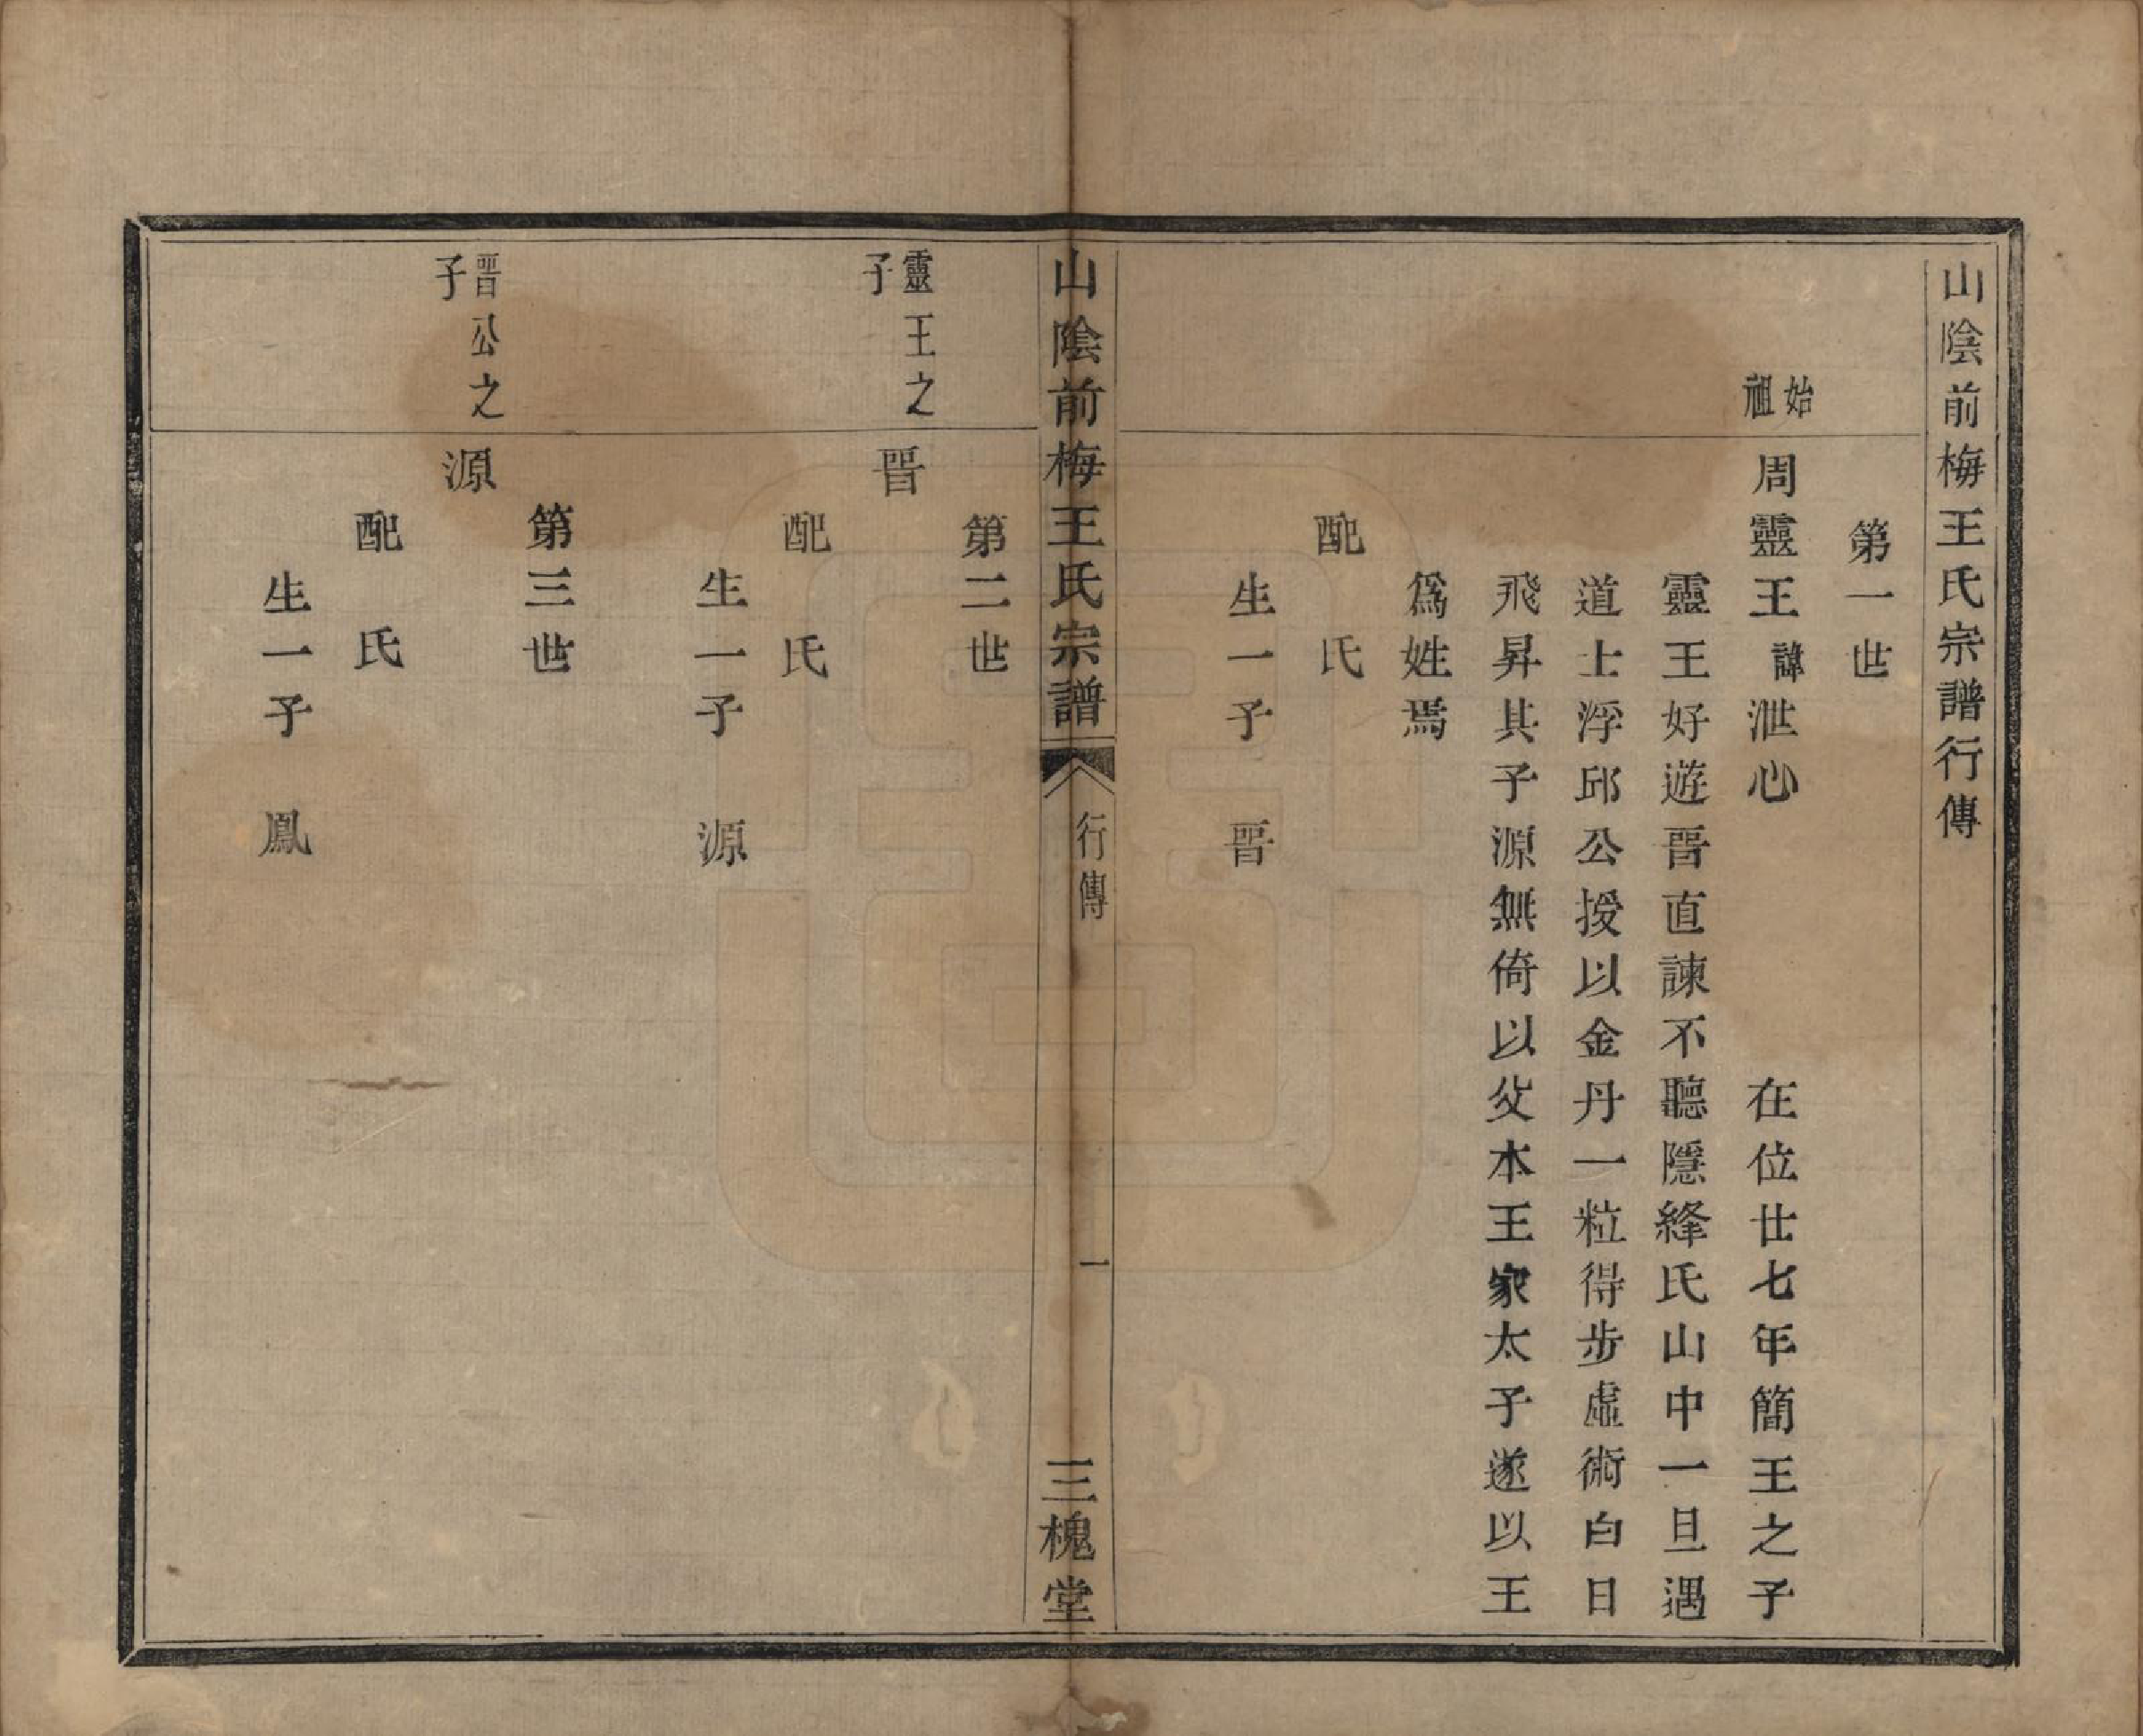 山陰前梅王氏宗譜行傳
第一世
始祖
周靈王 諱泄心 在位廿七年簡王之子
靈王好遊晋直諫不聽隱絳氏山中一旦遇
道士浮邱公授以金丹一粒得步虛術白日
飛昇其子源無倚以父本王家太子遂以王
爲姓焉
配 氏
生一子 晋
山陰前梅王氏宗譜 行傳 一 三槐堂
第二世
靈王之子
晋
配 氏
生一子 源
第三世
晋公之子
源
配 氏
生一子 鳳